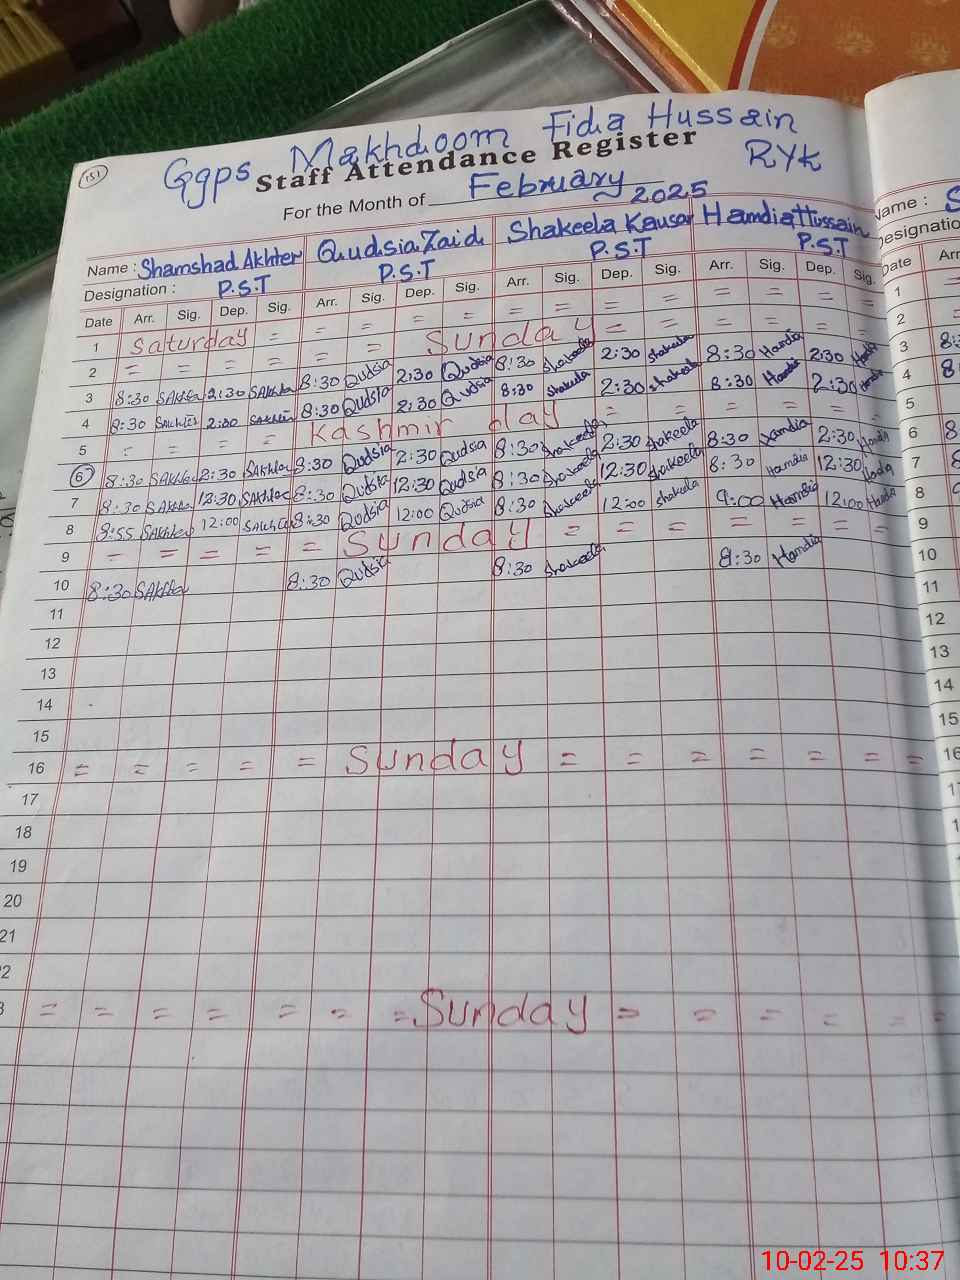 151
Ggps Makhdoom Fida Hussain
RYK
Staff Attendance Register
For the Month of February 2025
Name : Shamshad Akhter Qudsia Zaid Shakeela Kausar Hamdia Hussain
Designation : P.S.T P.S.T P.S.T P.S.T
Date Arr. Sig. Dep. Sig. Arr. Sig. Dep. Sig. Arr. Sig. Dep. Sig. Arr. Sig. Dep. Sig.
1 Saturday = = = = = = = = = = =
2 = = = = = Sunday = = = = = =
3 8:30 SAkhter 2:30 SAkhter 8:30 Qudsia 2:30 Qudsia 8:30 Shakeela 2:30 Shakeela 8:30 Hamdia 2:30 Hamdia
4 8:30 SAkhter 2:30 SAkhter 8:30 Qudsia 2:30 Qudsia 8:30 Shakeela 2:30 Shakeela 8:30 Hamdia 2:30 Hamdia
5 = = = = Kashmir day = = = = = =
6 8:30 SAkhter 2:30 SAkhter 8:30 Qudsia 2:30 Qudsia 8:30 Shakeela 2:30 Shakeela 8:30 Hamdia 2:30 Hamdia
7 8:30 SAkhter 12:30 SAkhter 8:30 Qudsia 12:30 Qudsia 8:30 Shakeela 12:30 Shakeela 8:30 Hamdia 12:30
8 8:55 SAkhter 12:00 SAkhter 8:30 Qudsia 12:00 Qudsia 8:30 Shakeela 12:00 Shakeela 9:00 Hamdia 12:00 Hamdia
9 = = = = = Sunday = = = = = = =
10 8:30 SAkhter 8:30 Qudsia 8:30 Shakeela 8:30 Hamdia
11
12
13
14
15
16 = = = = = Sunday = = = = = = =
17
18
19
20
21
2
3 = = = = = = = Sunday = = = = = =
Name : S
Designatio
Date Arr
1
2
3 8:3
4 8
5
6 8
7 8
8 9
9
10
11
12
13
14
15
16
10-02-25 10:37